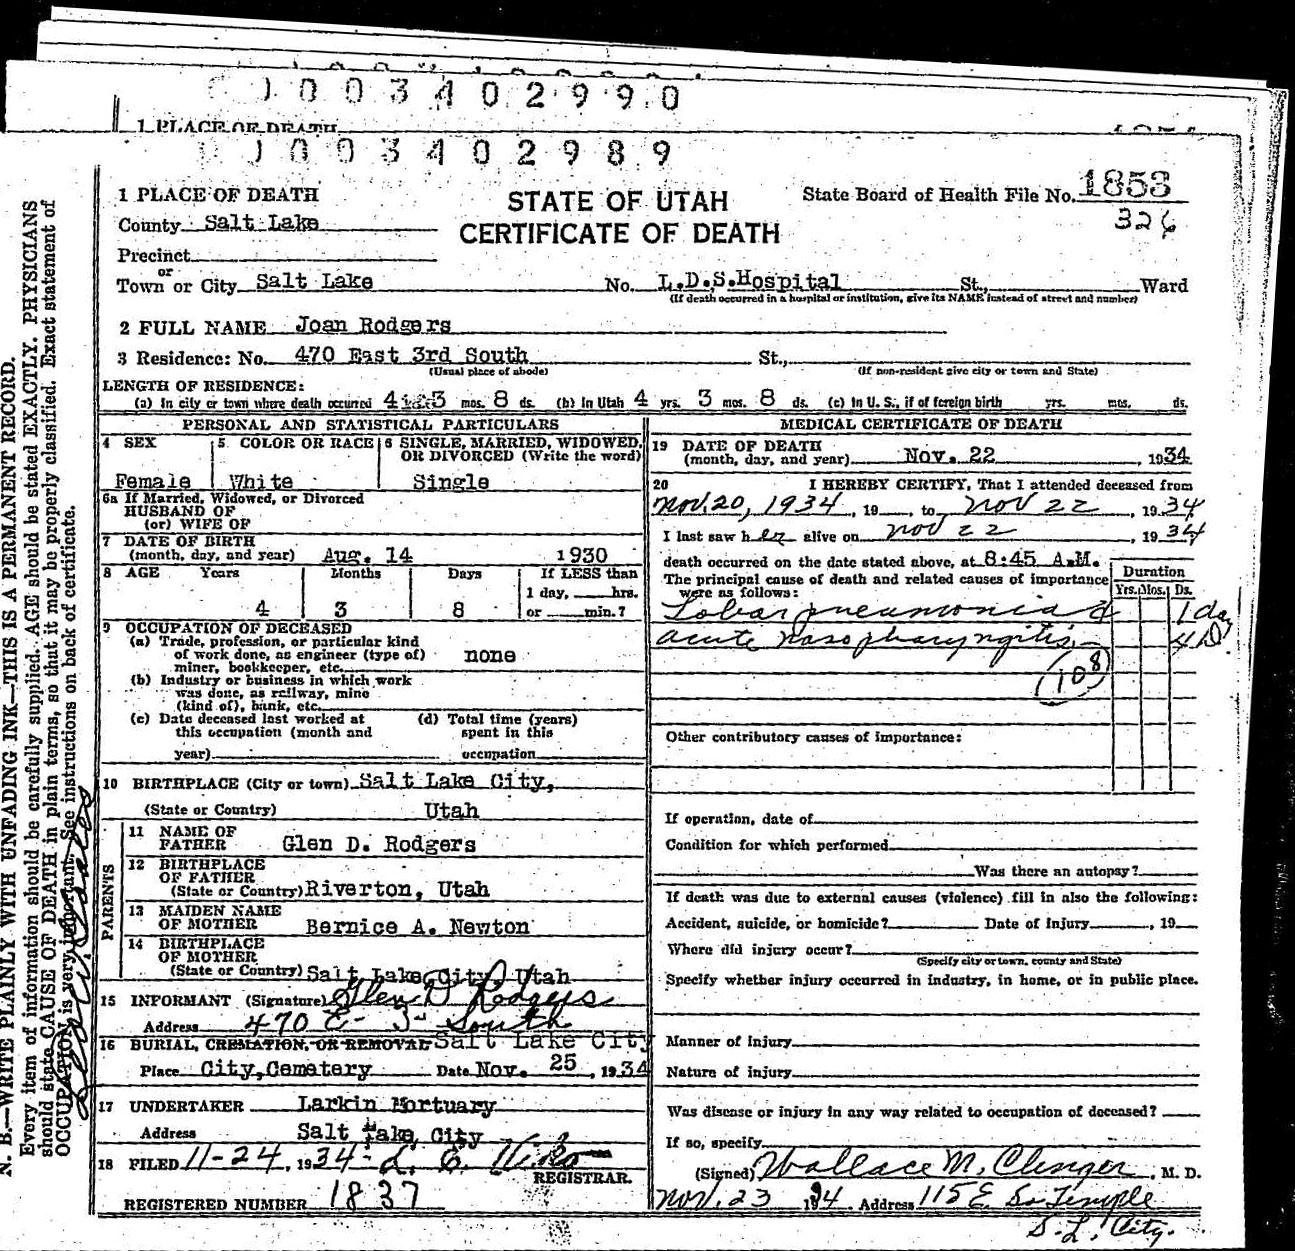 0 0 3 4 0 2 9 9 0
1 PLACE OF DEATH
0 0 3 4 0 2 9 8 9
1 PLACE OF DEATH
STATE OF UTAH
CERTIFICATE OF DEATH
State Board of Health File No. 1853
326
County Salt Lake
Precinct
or
Town or City Salt Lake No. L.D.S.Hospital St., Ward
(If death occurred in a hospital or institution, give its NAME instead of street and number)
2 FULL NAME Joan Rodgers
3 Residence: No. 470 East 3rd South St.,
(Usual place of abode) (If non-resident give city or town and State)
LENGTH OF RESIDENCE:
(a) In city or town where death occurred 4 yrs. 3 mos. 8 ds. (b) In Utah 4 yrs. 3 mos. 8 ds. (c) In U. S., if of foreign birth yrs. mos. ds.
PERSONAL AND STATISTICAL PARTICULARS
4 SEX 5 COLOR OR RACE 6 SINGLE, MARRIED, WIDOWED, OR DIVORCED (Write the word)
Female White Single
6a If Married, Widowed, or Divorced
HUSBAND OF
(or) WIFE OF
7 DATE OF BIRTH
(month, day, and year) Aug. 14 1930
8 AGE Years Months Days If LESS than
1 day, hrs.
4 3 8 or min.?
9 OCCUPATION OF DECEASED
(a) Trade, profession, or particular kind
of work done, as engineer (type of) none
miner, bookkeeper, etc.
(b) Industry or business in which work
was done, as railway, mine
(kind of), bank, etc.
(c) Date deceased last worked at (d) Total time (years)
this occupation (month and spent in this
year) occupation
10 BIRTHPLACE (City or town) Salt Lake City,
(State or Country) Utah
PARENTS
11 NAME OF
FATHER Glen D. Rodgers
12 BIRTHPLACE
OF FATHER
(State or Country) Riverton, Utah
13 MAIDEN NAME
OF MOTHER Bernice A. Newton
14 BIRTHPLACE
OF MOTHER
(State or Country) Salt Lake City, Utah
15 INFORMANT (Signature) Glen D Rodgers
Address 470 E - 3 - South
16 BURIAL, CREMATION, OR REMOVAL Salt Lake City
Place City, Cemetery Date Nov. 25, 1934
17 UNDERTAKER Larkin Mortuary
Address Salt Lake City
18 FILED 11-24, 1934
REGISTRAR.
REGISTERED NUMBER 1837
MEDICAL CERTIFICATE OF DEATH
19 DATE OF DEATH
(month, day, and year) Nov. 22, 1934
20 I HEREBY CERTIFY, That I attended deceased from
Nov. 20, 1934, 19 , to Nov 22, 1934
I last saw her alive on Nov 22, 1934
death occurred on the date stated above, at 8:45 A.M.
The principal cause of death and related causes of importance
were as follows: Duration
Yrs. Mos. Ds.
Lobar pneumonia & 1 day
acute nasopharyngitis 4 D.
(108)
Other contributory causes of importance:
If operation, date of
Condition for which performed
Was there an autopsy?
If death was due to external causes (violence) fill in also the following:
Accident, suicide, or homicide? Date of injury , 19
Where did injury occur?
(Specify city or town, county and State)
Specify whether injury occurred in industry, in home, or in public place.
Manner of injury
Nature of injury
Was disease or injury in any way related to occupation of deceased?
If so, specify
(Signed) Wallace M. Clinger, M. D.
Nov. 23 1934. Address 115 E So Temple
S. L. City.
N. B.—WRITE PLAINLY WITH UNFADING INK—THIS IS A PERMANENT RECORD.
Every item of information should be carefully supplied. AGE should be stated EXACTLY. PHYSICIANS
should state CAUSE OF DEATH in plain terms, so that it may be properly classified. Exact statement of
OCCUPATION is very important. See instructions on back of certificate.